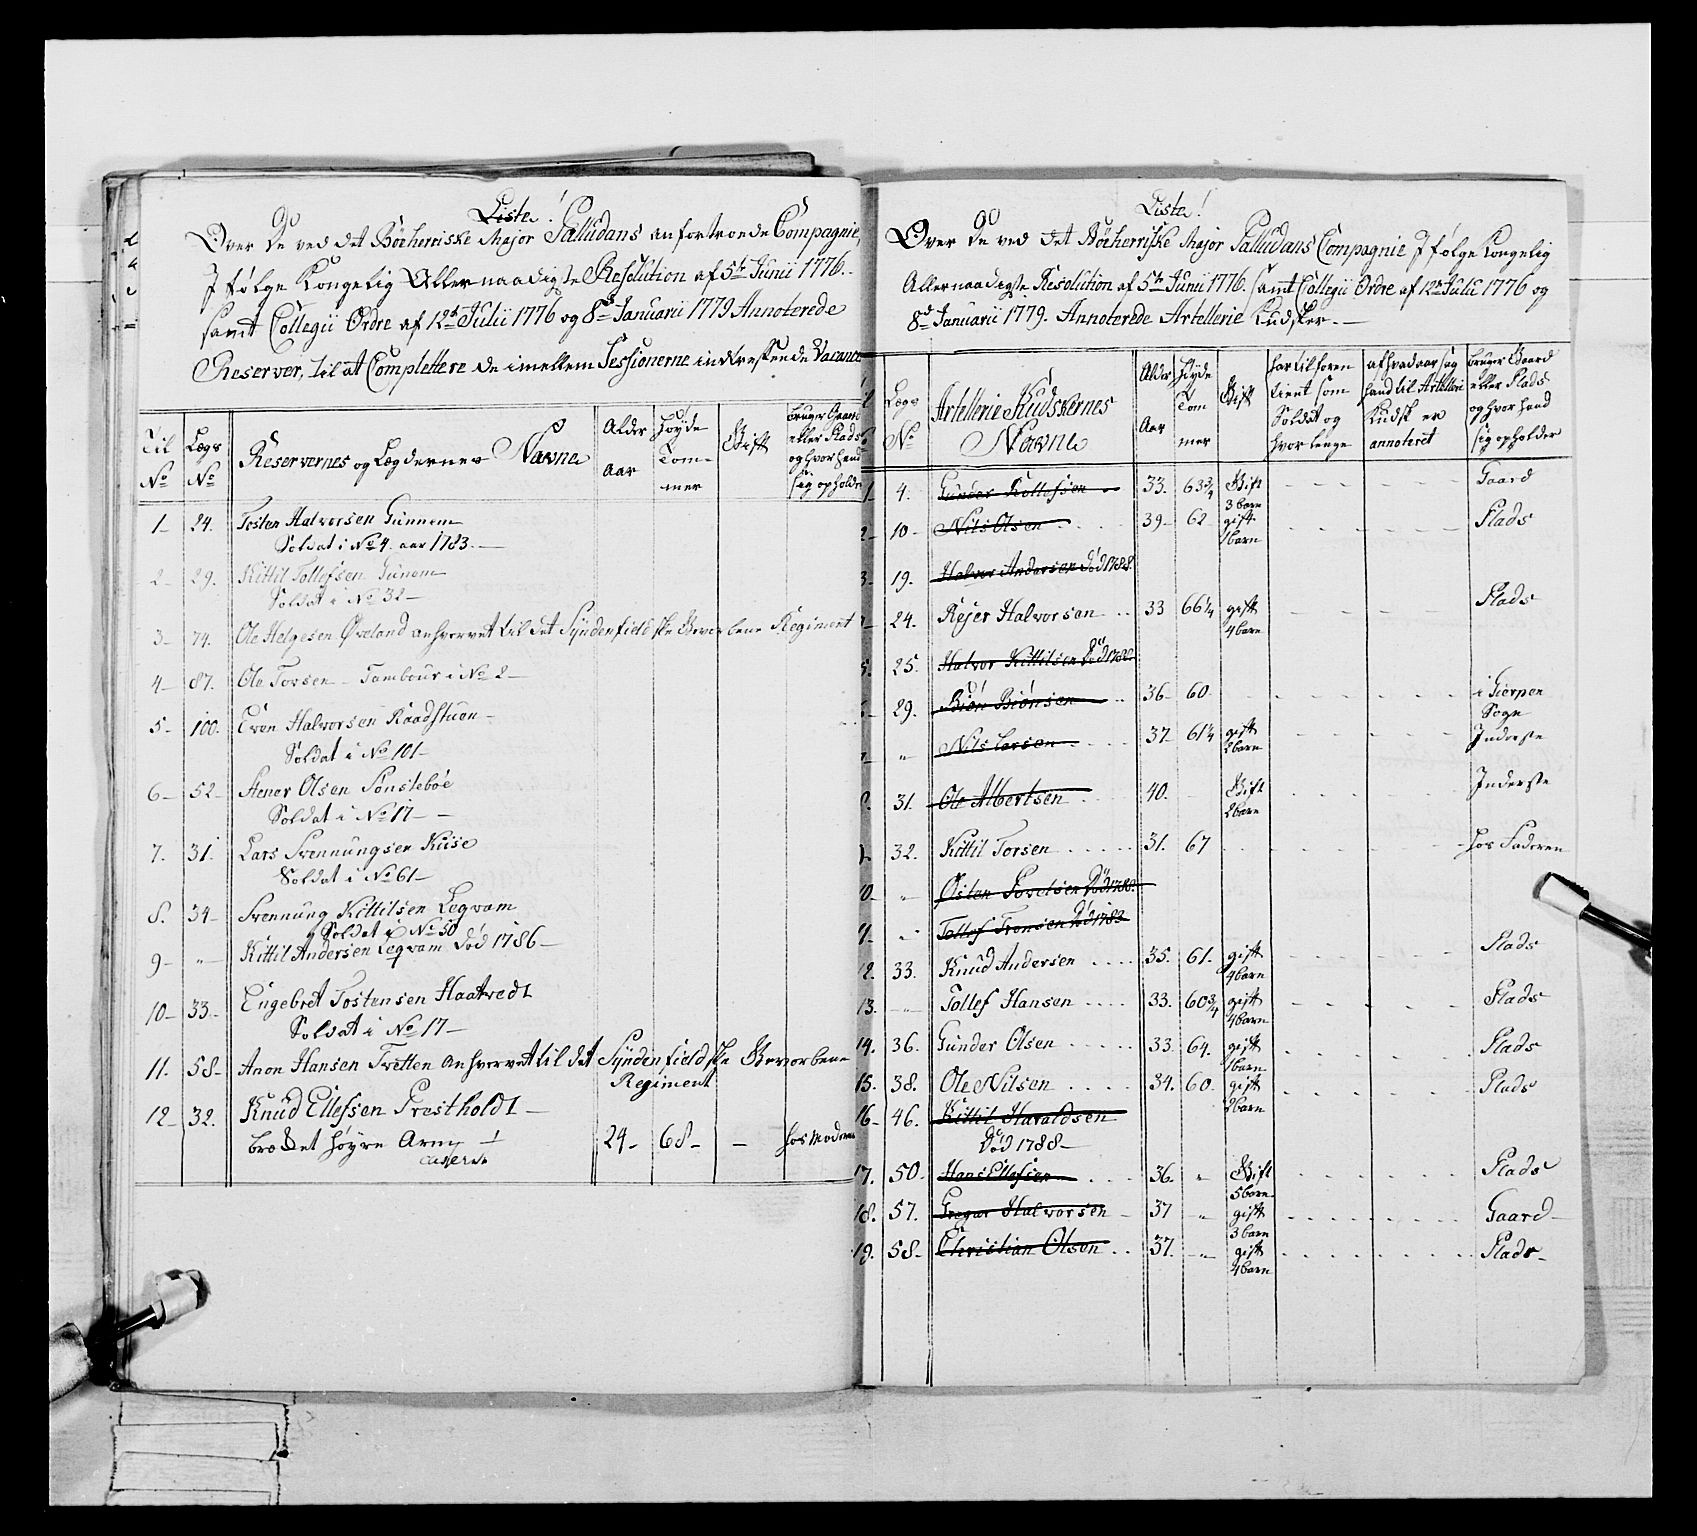 Liste!
Over de ved det Böeherriske Major Palludans anfortroede Compagnie,
Ifølge Kongelig Allernaadigste Resolution af 5te Junii 1776.
samt Collegii Ordre af 12te Julii 1776 og 8de Januarii 1779 Annoterede
Reserver, til at Complettere de imellem Sessionerne indtreffende Vacance
Til No
Lægs No
Reservernes og Lægdernes Navne
Alder Aar
Høyde Tommer
Gift
bruger Gaard eller Plads og hvor hand sig opholder
1 24. Tosten Halvorsen Gunnem
Soldat i No 4. aar 1783.
2 29. Kittil Tollefsen Gunem
Soldat i No 32
3 74. Ole Helgesen Øveland anhvervet til det Syndenfieldske Gevorbene Regiment
4 87. Ole Torsen Tambour i No 2
5 100. Even Halvorsen Raadstuen
Soldat i No 101
6 52 Stener Olsen Sønstebøe
Soldat i No 17
7. 31. Lars Svennungsen Kiise
Soldat i No 61
8. 34 Svennung Kittilsen Legvam
Soldat i No 50
9 " Kittil Andersen Legvam død 1786
10 33 Engebret Tostensen Haatvedt
Soldat i No 17
11. 58 Anon Hansen Tvetten anhvervet til det Syndenfieldske Gevorbene
Regiment
12 32. Knud Ellefsen Prestholdt
brodet høyre Arm 24 68 hos Moderen
Liste!
Over de ved det Böeherriske Major Palludans Compagnie Ifølge Kongelig
Allernaadigste Resolution af 5te Junii 1776. samt Collegii Ordre af 12te Julii 1776 og
8de Januarii 1779. Annoterede Artellerie Kudsker.
Lægs No
Artellerie Kudskernes Navne
Alder Aar
Høyde Tommer
Gift
har tilforen tient som Soldat og hvor lenge
af hvad aarsag hand til Artelleri Kudsk er annoteret
bruger Gaard eller Plads og hvor hand sig opholder
1 4. Gunder Kollefsen 33. 63¾ Gift 3 barn Gaard
2 10 Nils Olsen 39 62 gift 1 barn Plads
3 19. Halvor Andersen død 1788
24. Rejer Halvorsen 33 66¼ gift 4 barn Plads
5. 25. Halvor Kittilsen død
29. Biøn Biønsen 36 60 i Gierpen Sogn
" Nils Larsen 37 61¼ gift 2 barn Inderste
8. 31. Ole Albertsen 40. Gift 2 barn Inderste
32. Kittil Torsen 31. 67 hos Faderen
10 " Østen død
11 " Tollef død 1783
12. 33. Knud Andersen 35. 61. gift 4 barn Plads
13. " Tollef Hansen 33. 60¾ gift 4 barn Plads
14. 36. Gunder Olsen 33. 64. gift 1 barn Plads
15. 38. Ole Nilsen 34. 60. gift 2 barn Plads
16 46. Kittil Haraldsen
død 1788
17. 50 Hans Ellefsen 36. " Gift 5 barn Plads
18. 57. Gregar Halvorsen 37 " gift 3 barn Gaard
19. 58 Christian Olsen 37. " gift 4 barn Plads